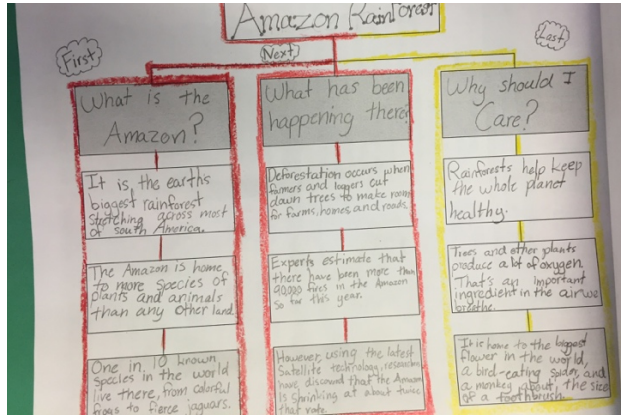 Amazon Rainforest
First
Next
Last
What is the
Amazon?
It is the earths
biggest rainforest
stretching across most
of south America.
The Amazon is home
to more species of
plants and animals
than any other land.
One in 10 known
species in the world
live there, from colorful
frogs to fierce jaguars.
What has been
happening there?
Deforestation occurs when
farmers and loggers cut
down trees to make room
for farms, homes and roads.
Experts estimate that
there have been more than
90,000 fires in the Amazon
so far this year.
However, using the latest
Satellite technology, researchers
have discovered that the Amazon
is shrinking at about twice
that rate.
Why should I
Care?
Rainforests help keep
the whole planet
healthy.
Trees and other plants
produce a lot of oxygen.
That's an important
ingredient in the air we
breathe.
It is home to the biggest
flower in the world,
a bird-eating spider, and
a monkey about the size
of a toothbrush.